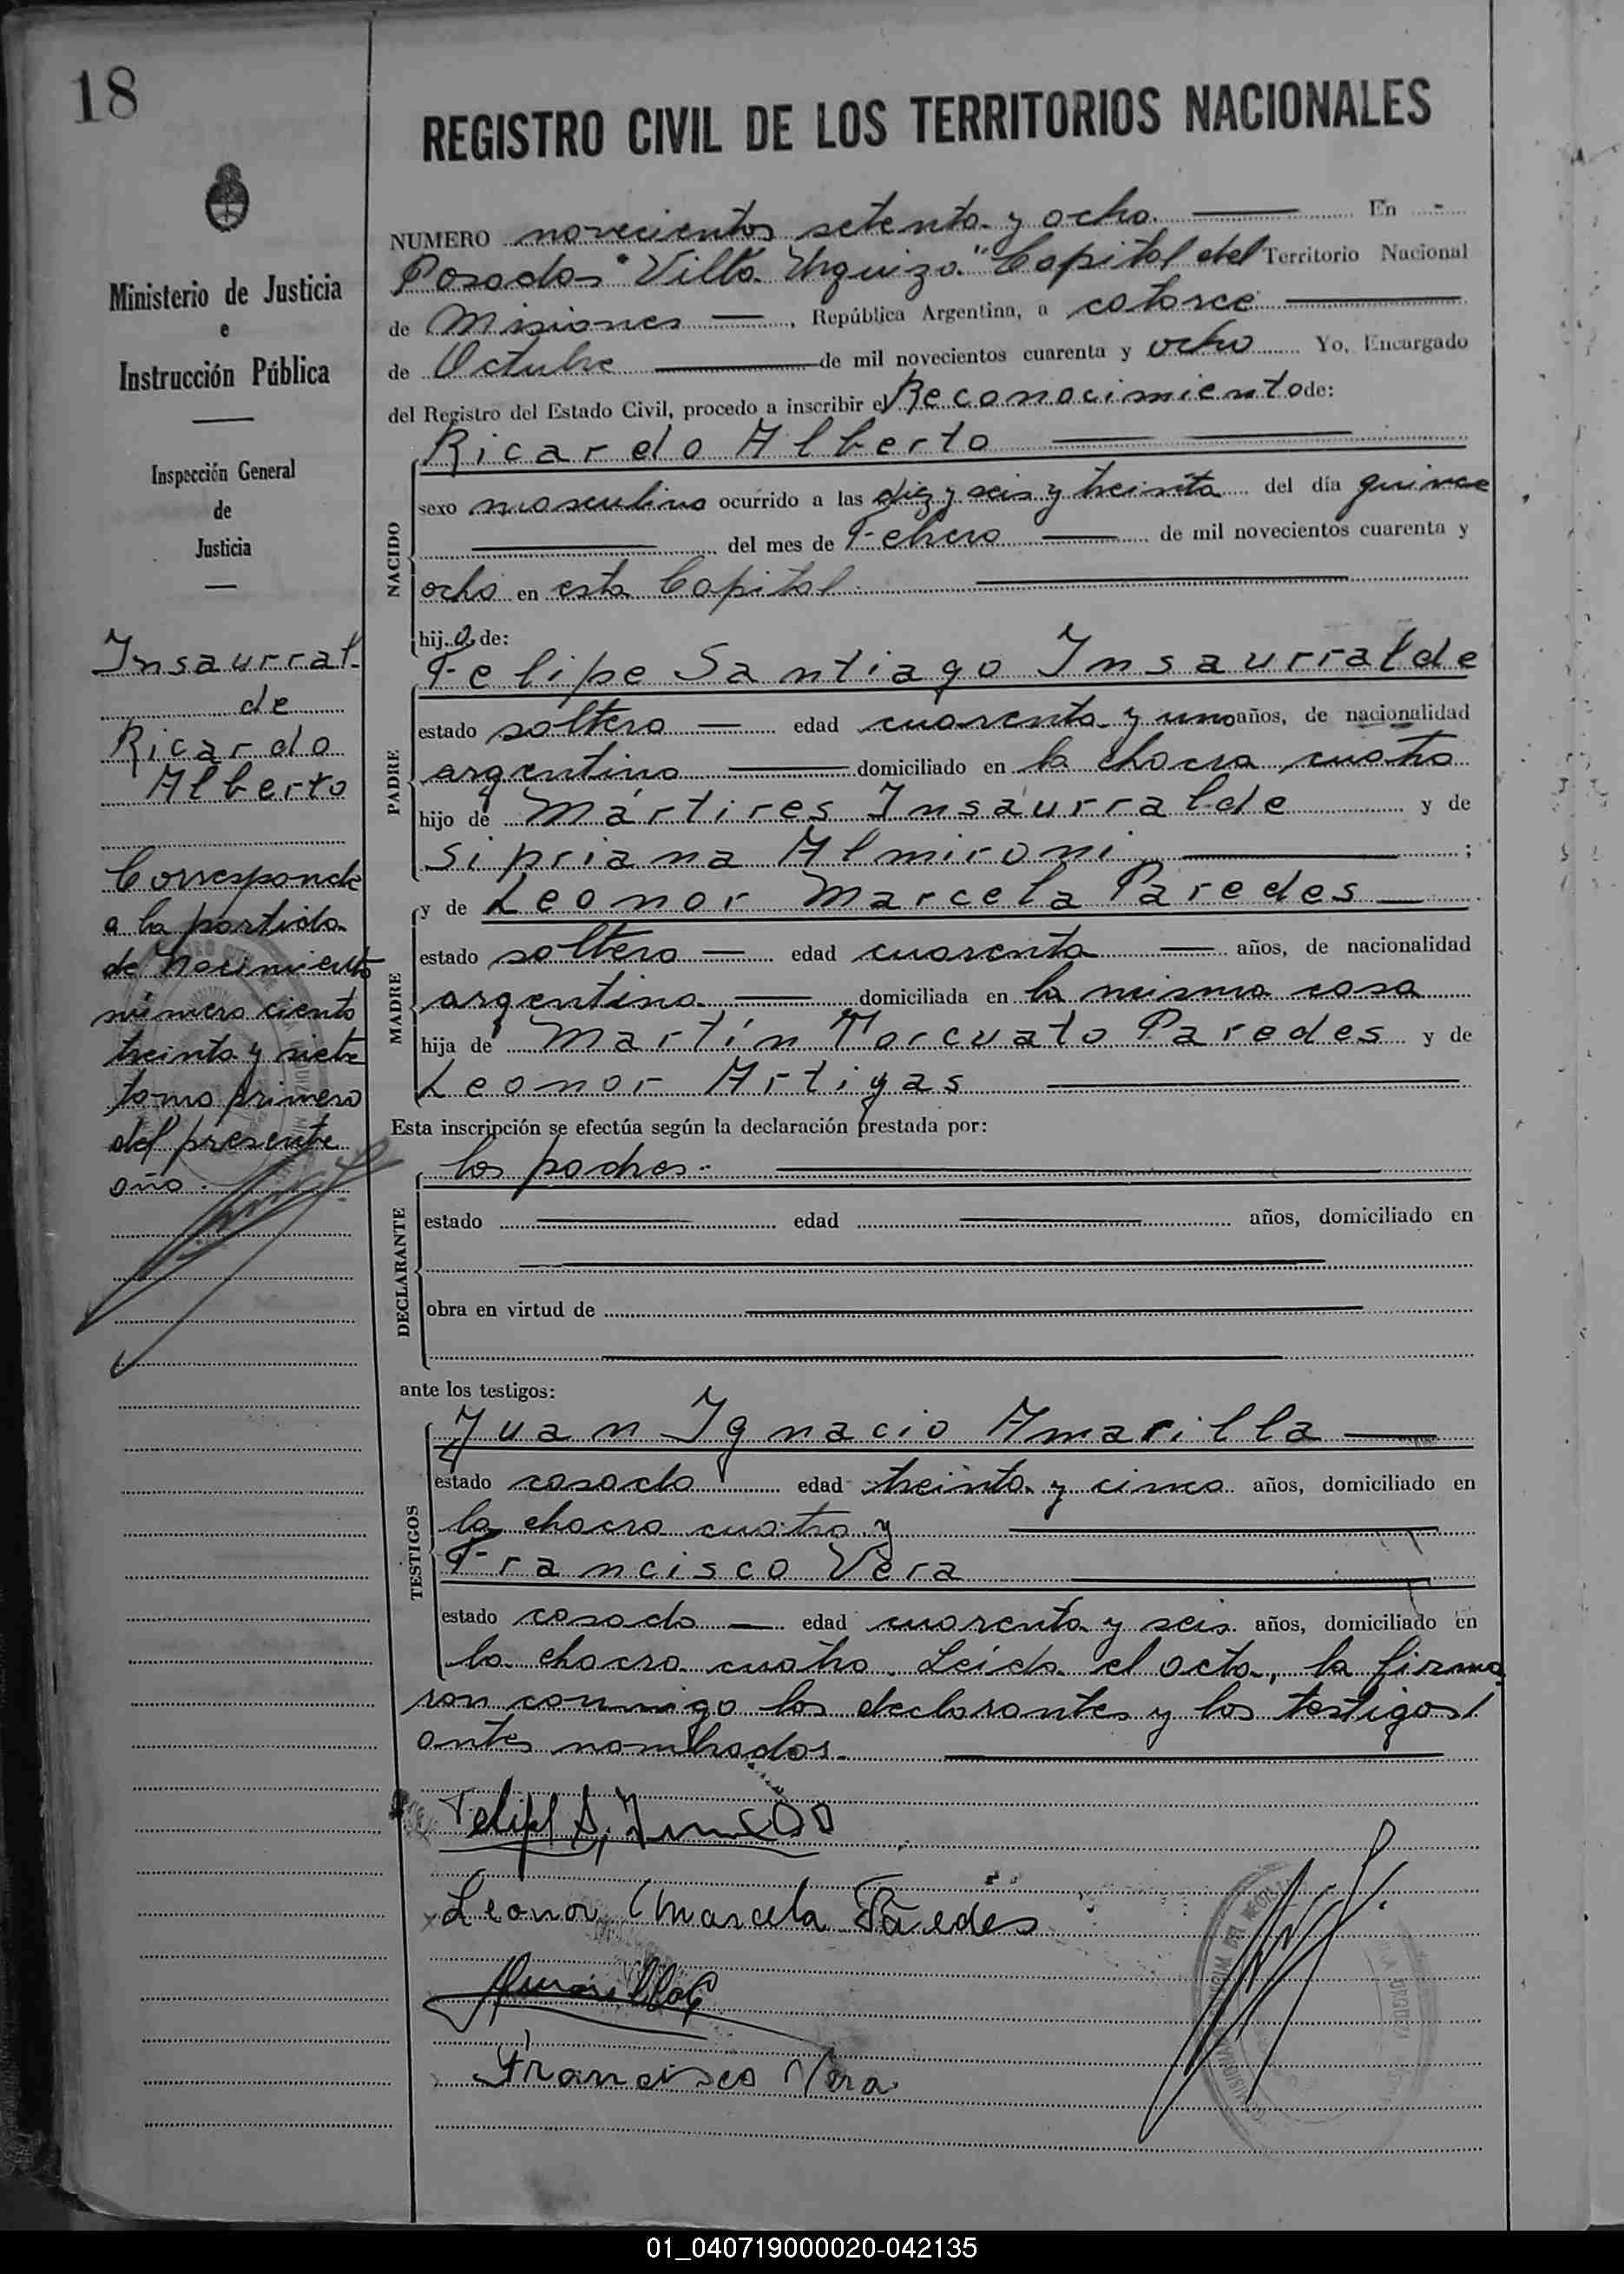 18
REGISTRO CIVIL DE LOS TERRITORIOS NACIONALES
Ministerio de Justicia
e
Instrucción Pública
Inspección General
de
Justicia
Insaurral-
de
Ricardo
Alberto
Corresponde
a la partida
de Nacimiento
número ciento
treinta y siete
tomo primero
del presente
año.
NUMERO novecientos setenta y ocho. En -
Posadas "Villa Urquiza" Capital del Territorio Nacional
de Misiones, República Argentina, a catorce
de Octubre de mil novecientos cuarenta y ocho Yo, Encargado
del Registro del Estado Civil, procedo a inscribir el Reconocimiento de:
Ricardo Alberto
NACIDO
sexo masculino ocurrido a las diez y seis y treinta del día quince
del mes de Febrero de mil novecientos cuarenta y
ocho en esta Capital
hijo de:
Felipe Santiago Insaurralde
PADRE
estado soltero edad cuarenta y uno años, de nacionalidad
argentino domiciliado en la chacra cuatro
hijo de Mártires Insaurralde y de
Sipriana Almironi ;
y de Leonor Marcela Paredes
MADRE
estado soltera edad cuarenta años, de nacionalidad
argentina domiciliada en la misma casa
hija de Martín Torcuato Paredes y de
Leonor Artigas
Esta inscripción se efectúa según la declaración prestada por:
los padres.-
DECLARANTE
estado edad años, domiciliado en
obra en virtud de
ante los testigos:
Juan Ignacio Amarilla
TESTIGOS
estado casado edad treinta y cinco años, domiciliado en
la chacra cuatro y
Francisco Vera
estado casado edad cuarenta y seis años, domiciliado en
la chacra cuatro. Leída el acta, la firma
ron conmigo los declarantes y los testigos
antes nombrados.
Felipe S.
Leonor Marcela Paredes
Francisco Vera
01_040719000020-042135